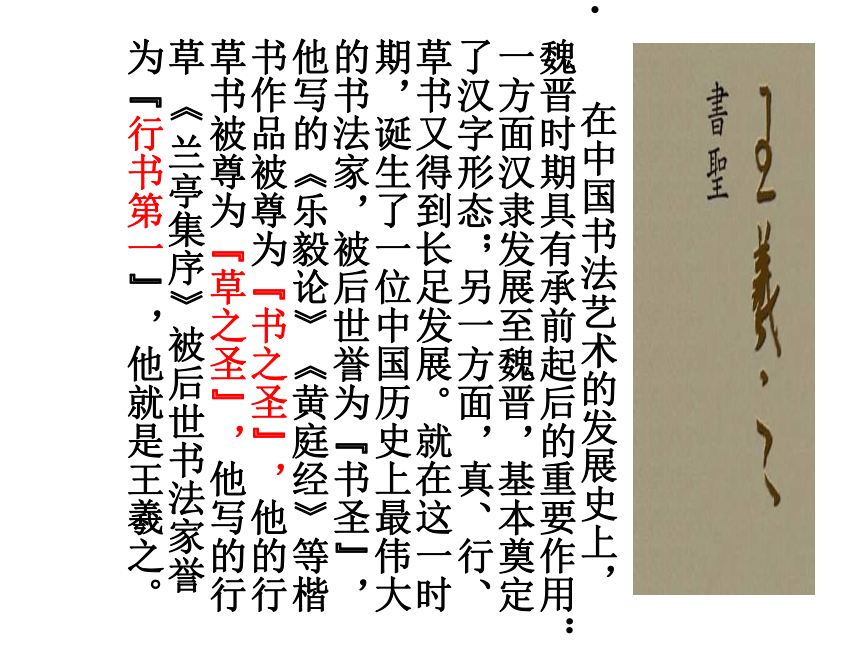 王羲之
書聖
在中国书法艺术的发展史上，
魏晋时期具有承前起后的重要作用：
一方面汉隶发展至魏晋，基本奠定
了汉字形态；另一方面，真、行、
草书又得到长足发展。就在这一时
期，诞生了一位中国历史上最伟大
的书法家，被后世誉为『书圣』，
他写的《乐毅论》《黄庭经》等楷
书作品被尊为『书之圣』，他的行
草书被尊为『草之圣』，他写的行
草《兰亭集序》被后世书法家誉
为『行书第一』，他就是王羲之。